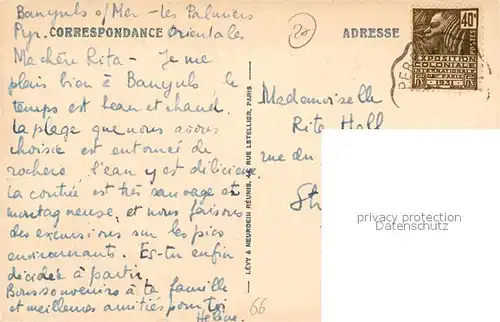 Banyuls s/Mer - Les Palmiers
Pyr. Orientales
CORRESPONDANCE
ADRESSE
Ma chère Rita - Je me
plais bien à Banyuls, le
temps est beau et chaud.
La plage que nous avons
choisie est entourée de
rochers, l'eau y est délicieuse
la contrée est très sauvage et
montagneuse, et nous faisons
des excursions sur les pics
environnants. Es-tu enfin
décidée à partir
Bons souvenirs à ta famille
et meilleures amitiés pour toi
Hélène.
66
LÉVY & NEURDEIN RÉUNIS, 44, RUE LETELLIER, PARIS
40c
POSTES
EXPOSITION
COLONIALE
INTERNATIONALE
PARIS
1931
PER
Mademoiselle
Rita Holl
rue du
St
privacy protection
Datenschutz